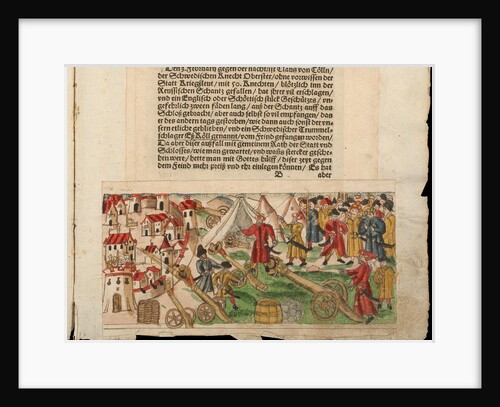 Den 3. Februarij gegen der nacht/ist Claus von Cölln/
der Schwedischen Knecht Oberster/ohne vorwissen der
Statt Kriegsleut/ mit 50. Knechten/ blötzlich inn der
Reussischen Schantz gefallen/ hat ihrer vil erschlagen/
vnd ein Englisch oder Schöttisch stück Geschützes/ vn-
gefehrlich zween fäden lang/ auß der Schantz auff das
Schloß gebracht/ aber auch selbst so vil empfangen/ das
er des andern tags gestorben/ wie dann auch sonst der vn-
sern etliche geblieben/ vnd ein Schwedischer Trummel-
schlager Eß Köll genannt/ vom Feind gefangen worden/
Da aber diser auffall mit gemeinem Rath der Statt vnd
Schlosses/ wie man gewartet/ vnd waß stercker gesche-
hen were/ hette man mit Gottes hülff/ diser zeyt gegen
dem Feind mehr preiß vnd ehr einlegen können/ Es hat
B aber